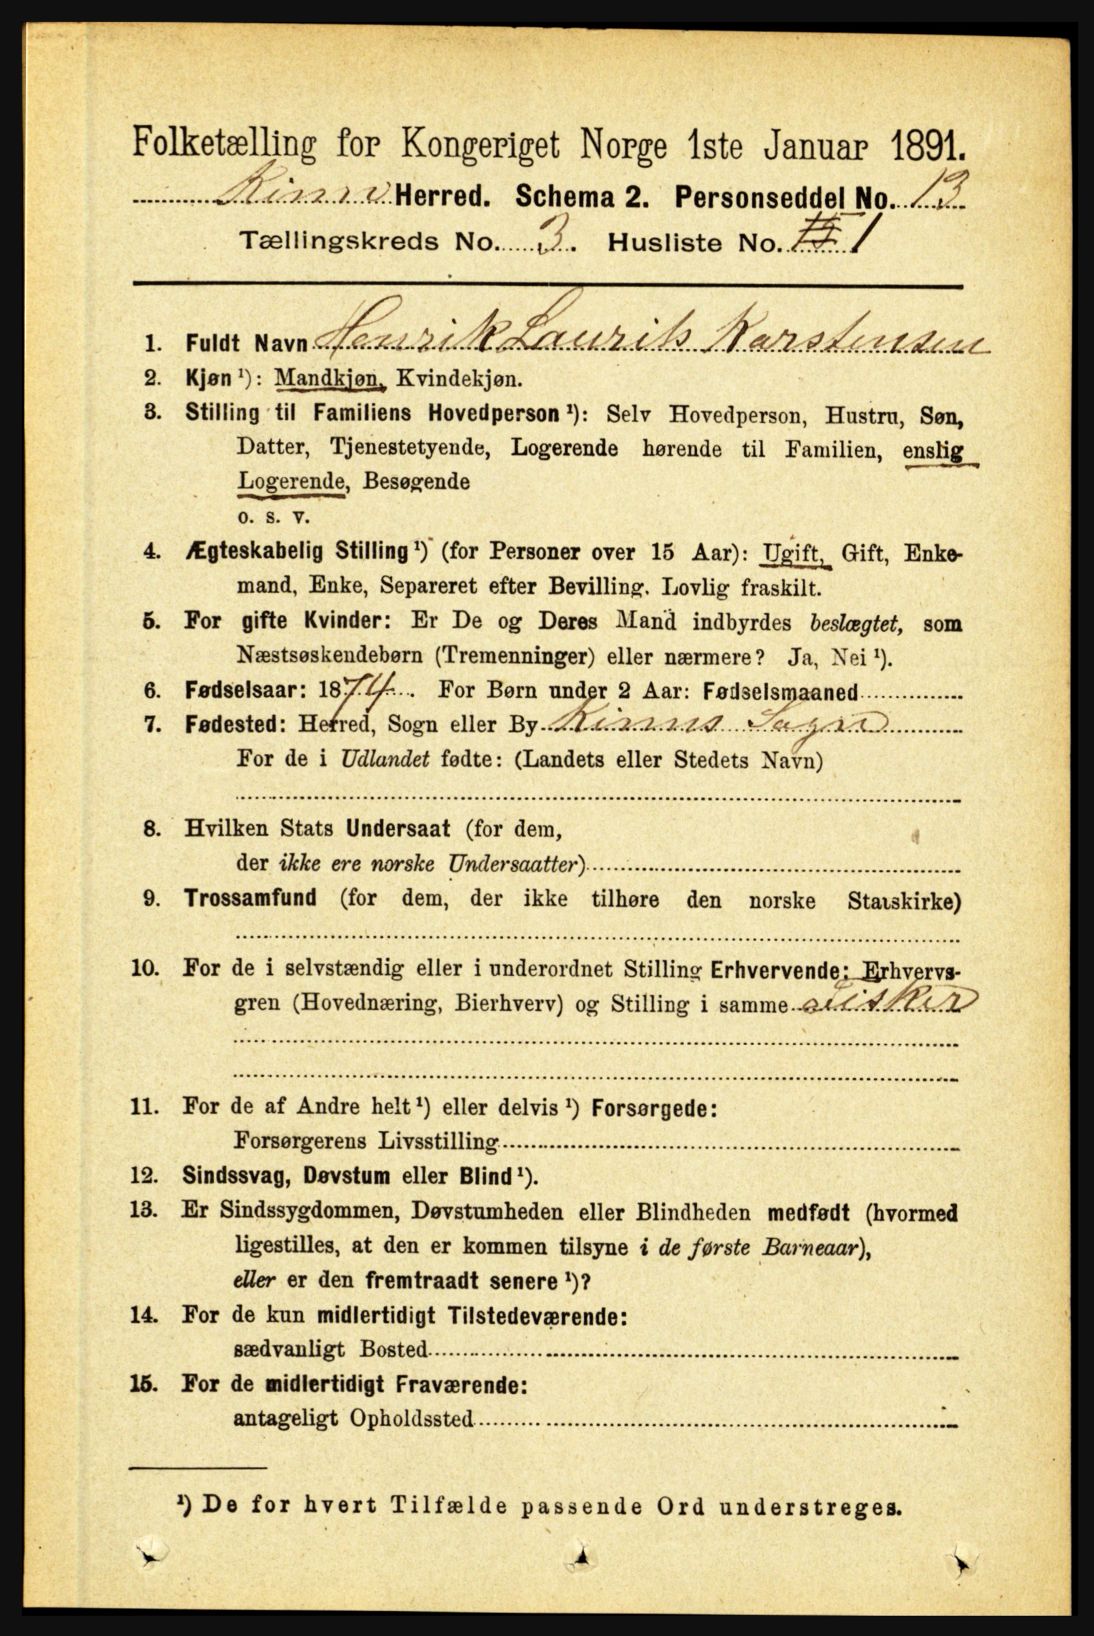 Folketælling for Kongeriget Norge 1ste Januar 1891.
Kinn Herred. Schema 2. Personseddel No. 13
Tællingskreds No. 3. Husliste No. 1
1. Fuldt Navn Henrik Laurits Karstensen
2. Kjøn ¹): Mandkjøn, Kvindekjøn.
3. Stilling til Familiens Hovedperson ¹): Selv Hovedperson, Hustru, Søn,
Datter, Tjenestetyende, Logerende hørende til Familien, enslig
Logerende, Besøgende
o. s. v.
4. Ægteskabelig Stilling ¹) (for Personer over 15 Aar): Ugift, Gift, Enke-
mand, Enke, Separeret efter Bevilling. Lovlig fraskilt.
5. For gifte Kvinder: Er De og Deres Mand indbyrdes beslægtet, som
Næstsøskendebørn (Tremenninger) eller nærmere? Ja, Nei ¹).
6. Fødselsaar: 1874. For Børn under 2 Aar: Fødselsmaaned
7. Fødested: Herred, Sogn eller By Kinns Sogn
For de i Udlandet fødte: (Landets eller Stedets Navn)
8. Hvilken Stats Undersaat (for dem,
der ikke ere norske Undersaatter)
9. Trossamfund (for dem, der ikke tilhøre den norske Statskirke)
10. For de i selvstændig eller i underordnet Stilling Erhvervende: Erhvervs-
gren (Hovednæring, Bierhverv) og Stilling i samme Fisker
11. For de af Andre helt ¹) eller delvis ¹) Forsørgede:
Forsørgerens Livsstilling
12. Sindssvag, Døvstum eller Blind ¹).
13. Er Sindssygdommen, Døvstumheden eller Blindheden medfødt (hvormed
ligestilles, at den er kommen tilsyne i de første Barneaar),
eller er den fremtraadt senere ¹)?
14. For de kun midlertidigt Tilstedeværende:
sædvanligt Bosted
15. For de midlertidigt Fraværende:
antageligt Opholdssted
¹) De for hvert Tilfælde passende Ord understreges.